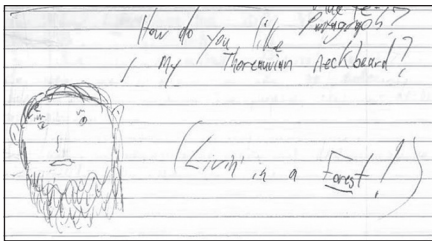 How do you like
Paragraph?
, My Thoreauvian neckbeard?
(Livin' in a Forest!)